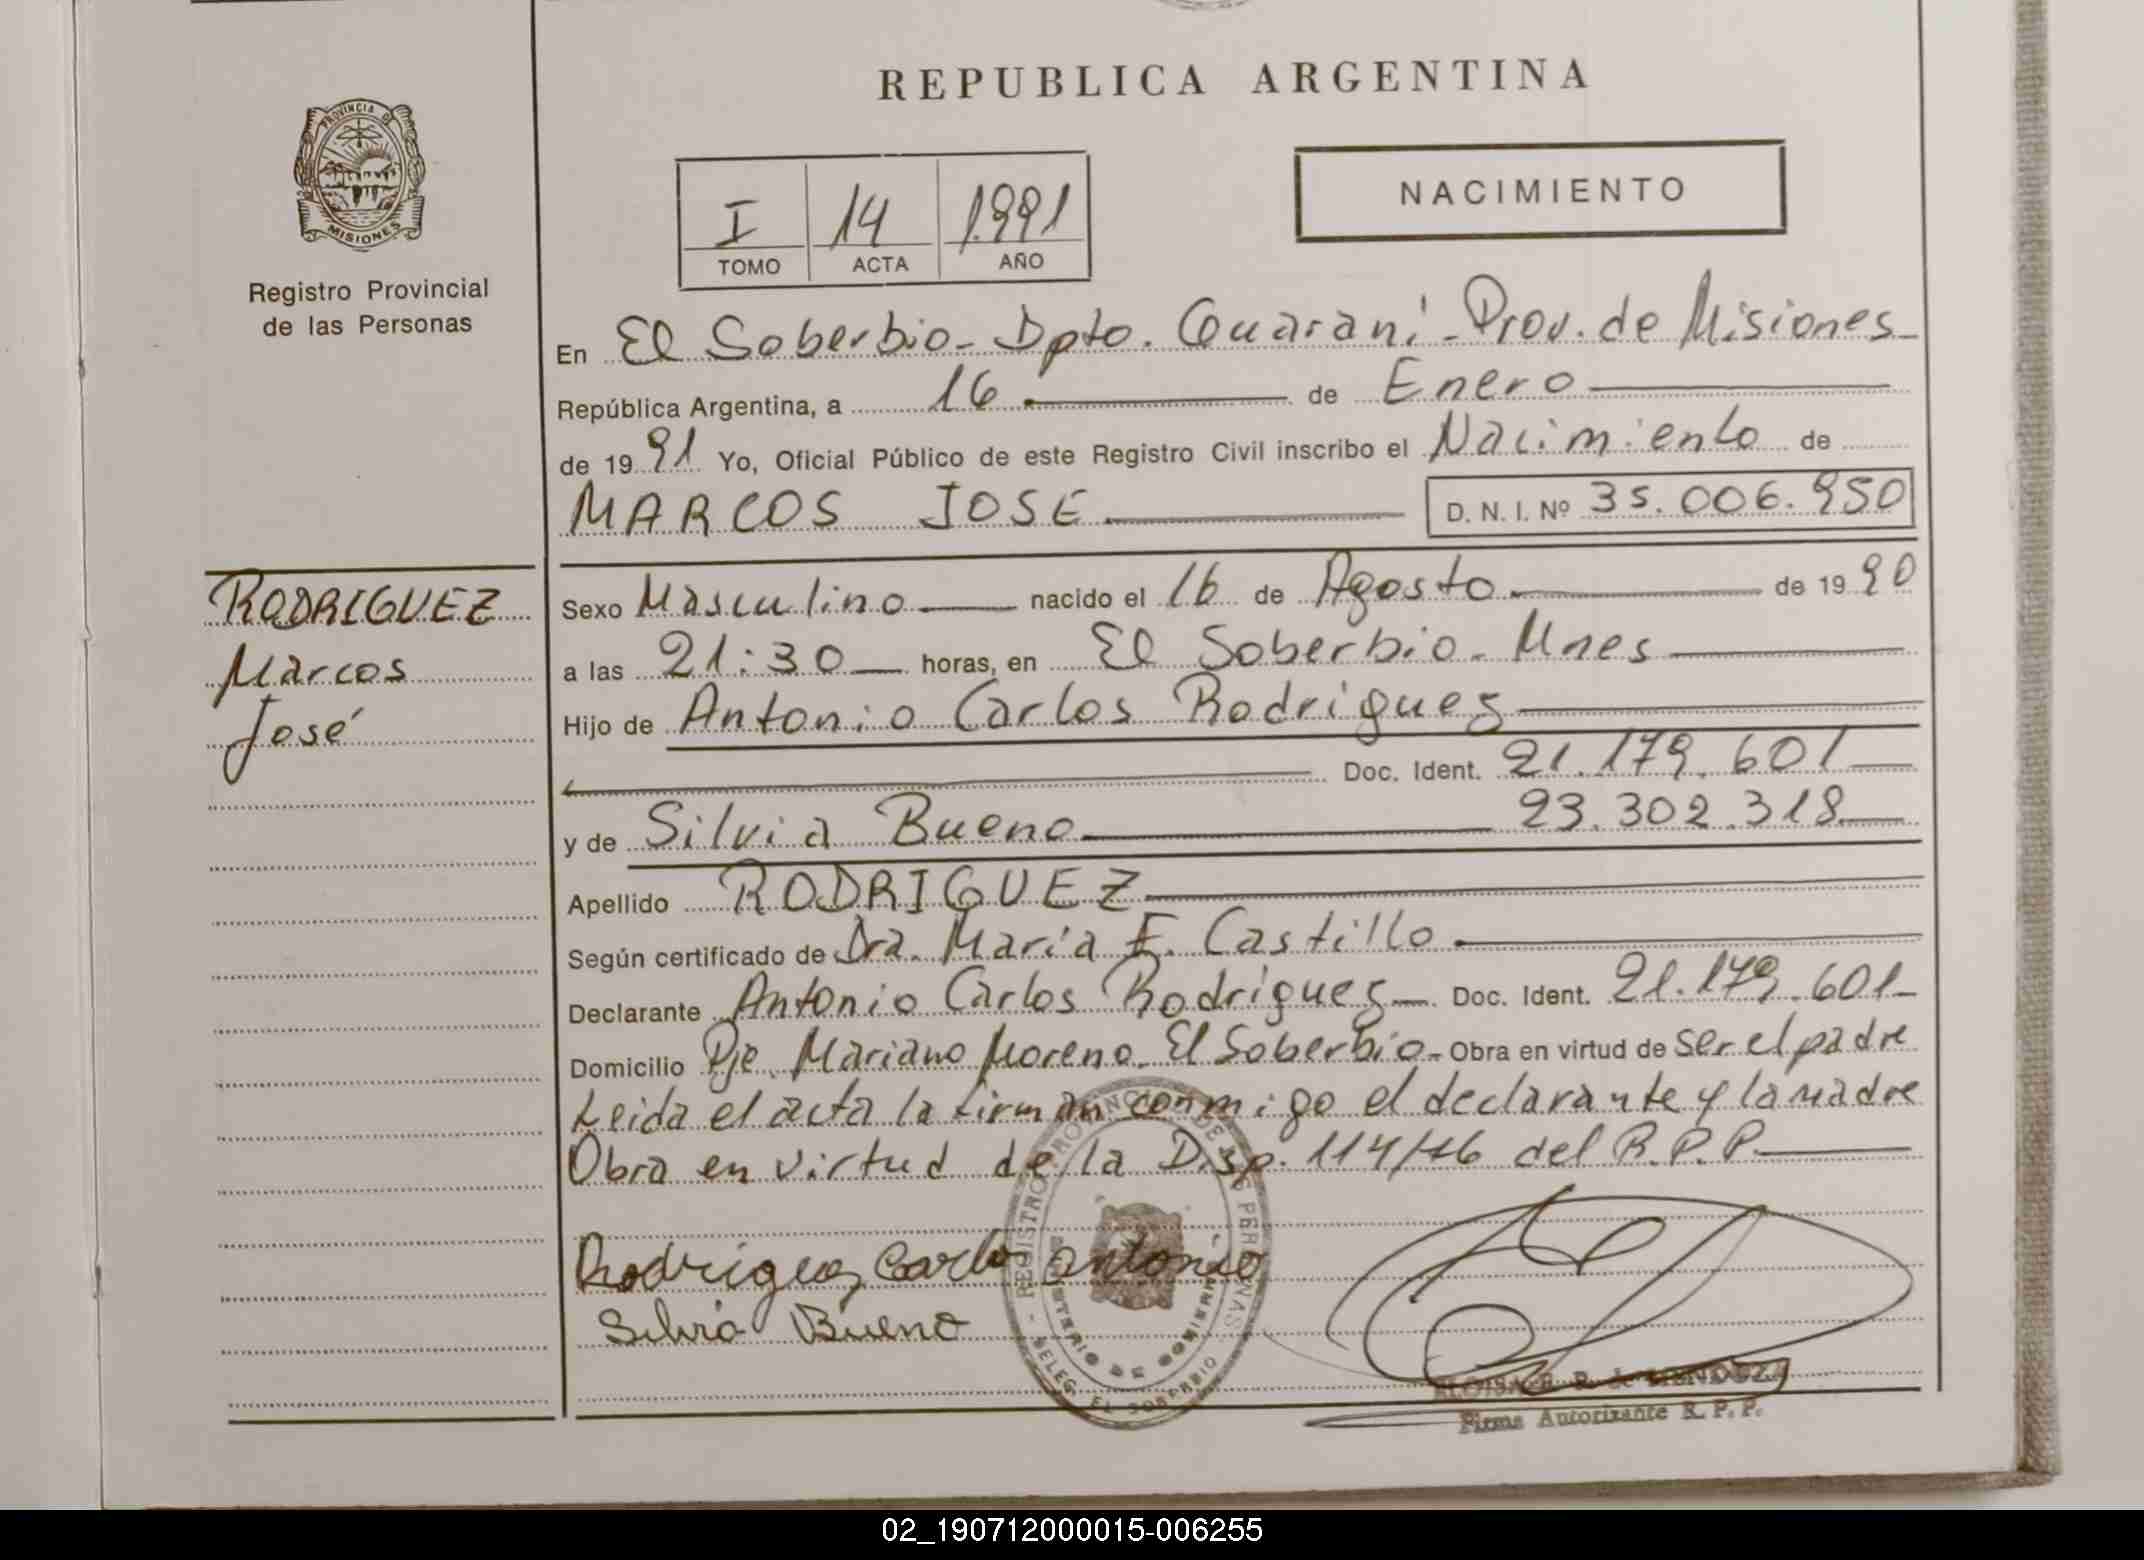 REPUBLICA ARGENTINA
PROVINCIA DE
MISIONES
Registro Provincial
de las Personas
I 14 1.991
TOMO ACTA AÑO
NACIMIENTO
En El Soberbio - Dpto. Guaraní - Prov. de Misiones -
República Argentina, a 16 de Enero
de 1991 Yo, Oficial Público de este Registro Civil inscribo el Nacimiento de
MARCOS JOSE D. N. I. Nº 35.006.950
RODRIGUEZ
Marcos
José
Sexo Masculino nacido el 16 de Agosto de 1990
a las 21:30 horas, en El Soberbio - Mnes
Hijo de Antonio Carlos Rodriguez
Doc. Ident. 21.179.601
y de Silvia Bueno 23.302.318
Apellido RODRIGUEZ
Según certificado de Dra. María E. Castillo
Declarante Antonio Carlos Rodriguez Doc. Ident. 21.179.601
Domicilio Pje. Mariano Moreno - El Soberbio - Obra en virtud de ser el padre
Leida el acta la firman conmigo el declarante y la madre
Obra en virtud de la Disp. 114/76 del R.P.P.
Rodriguez Carlo Antonio
Silvia Bueno
REGISTRO PROVINCIAL DE LAS PERSONAS
MINISTERIO DE GOBIERNO
DELEG. EL SOBERBIO
de MENDOZA
Firma Autorizante R. P. P.
02_190712000015-006255